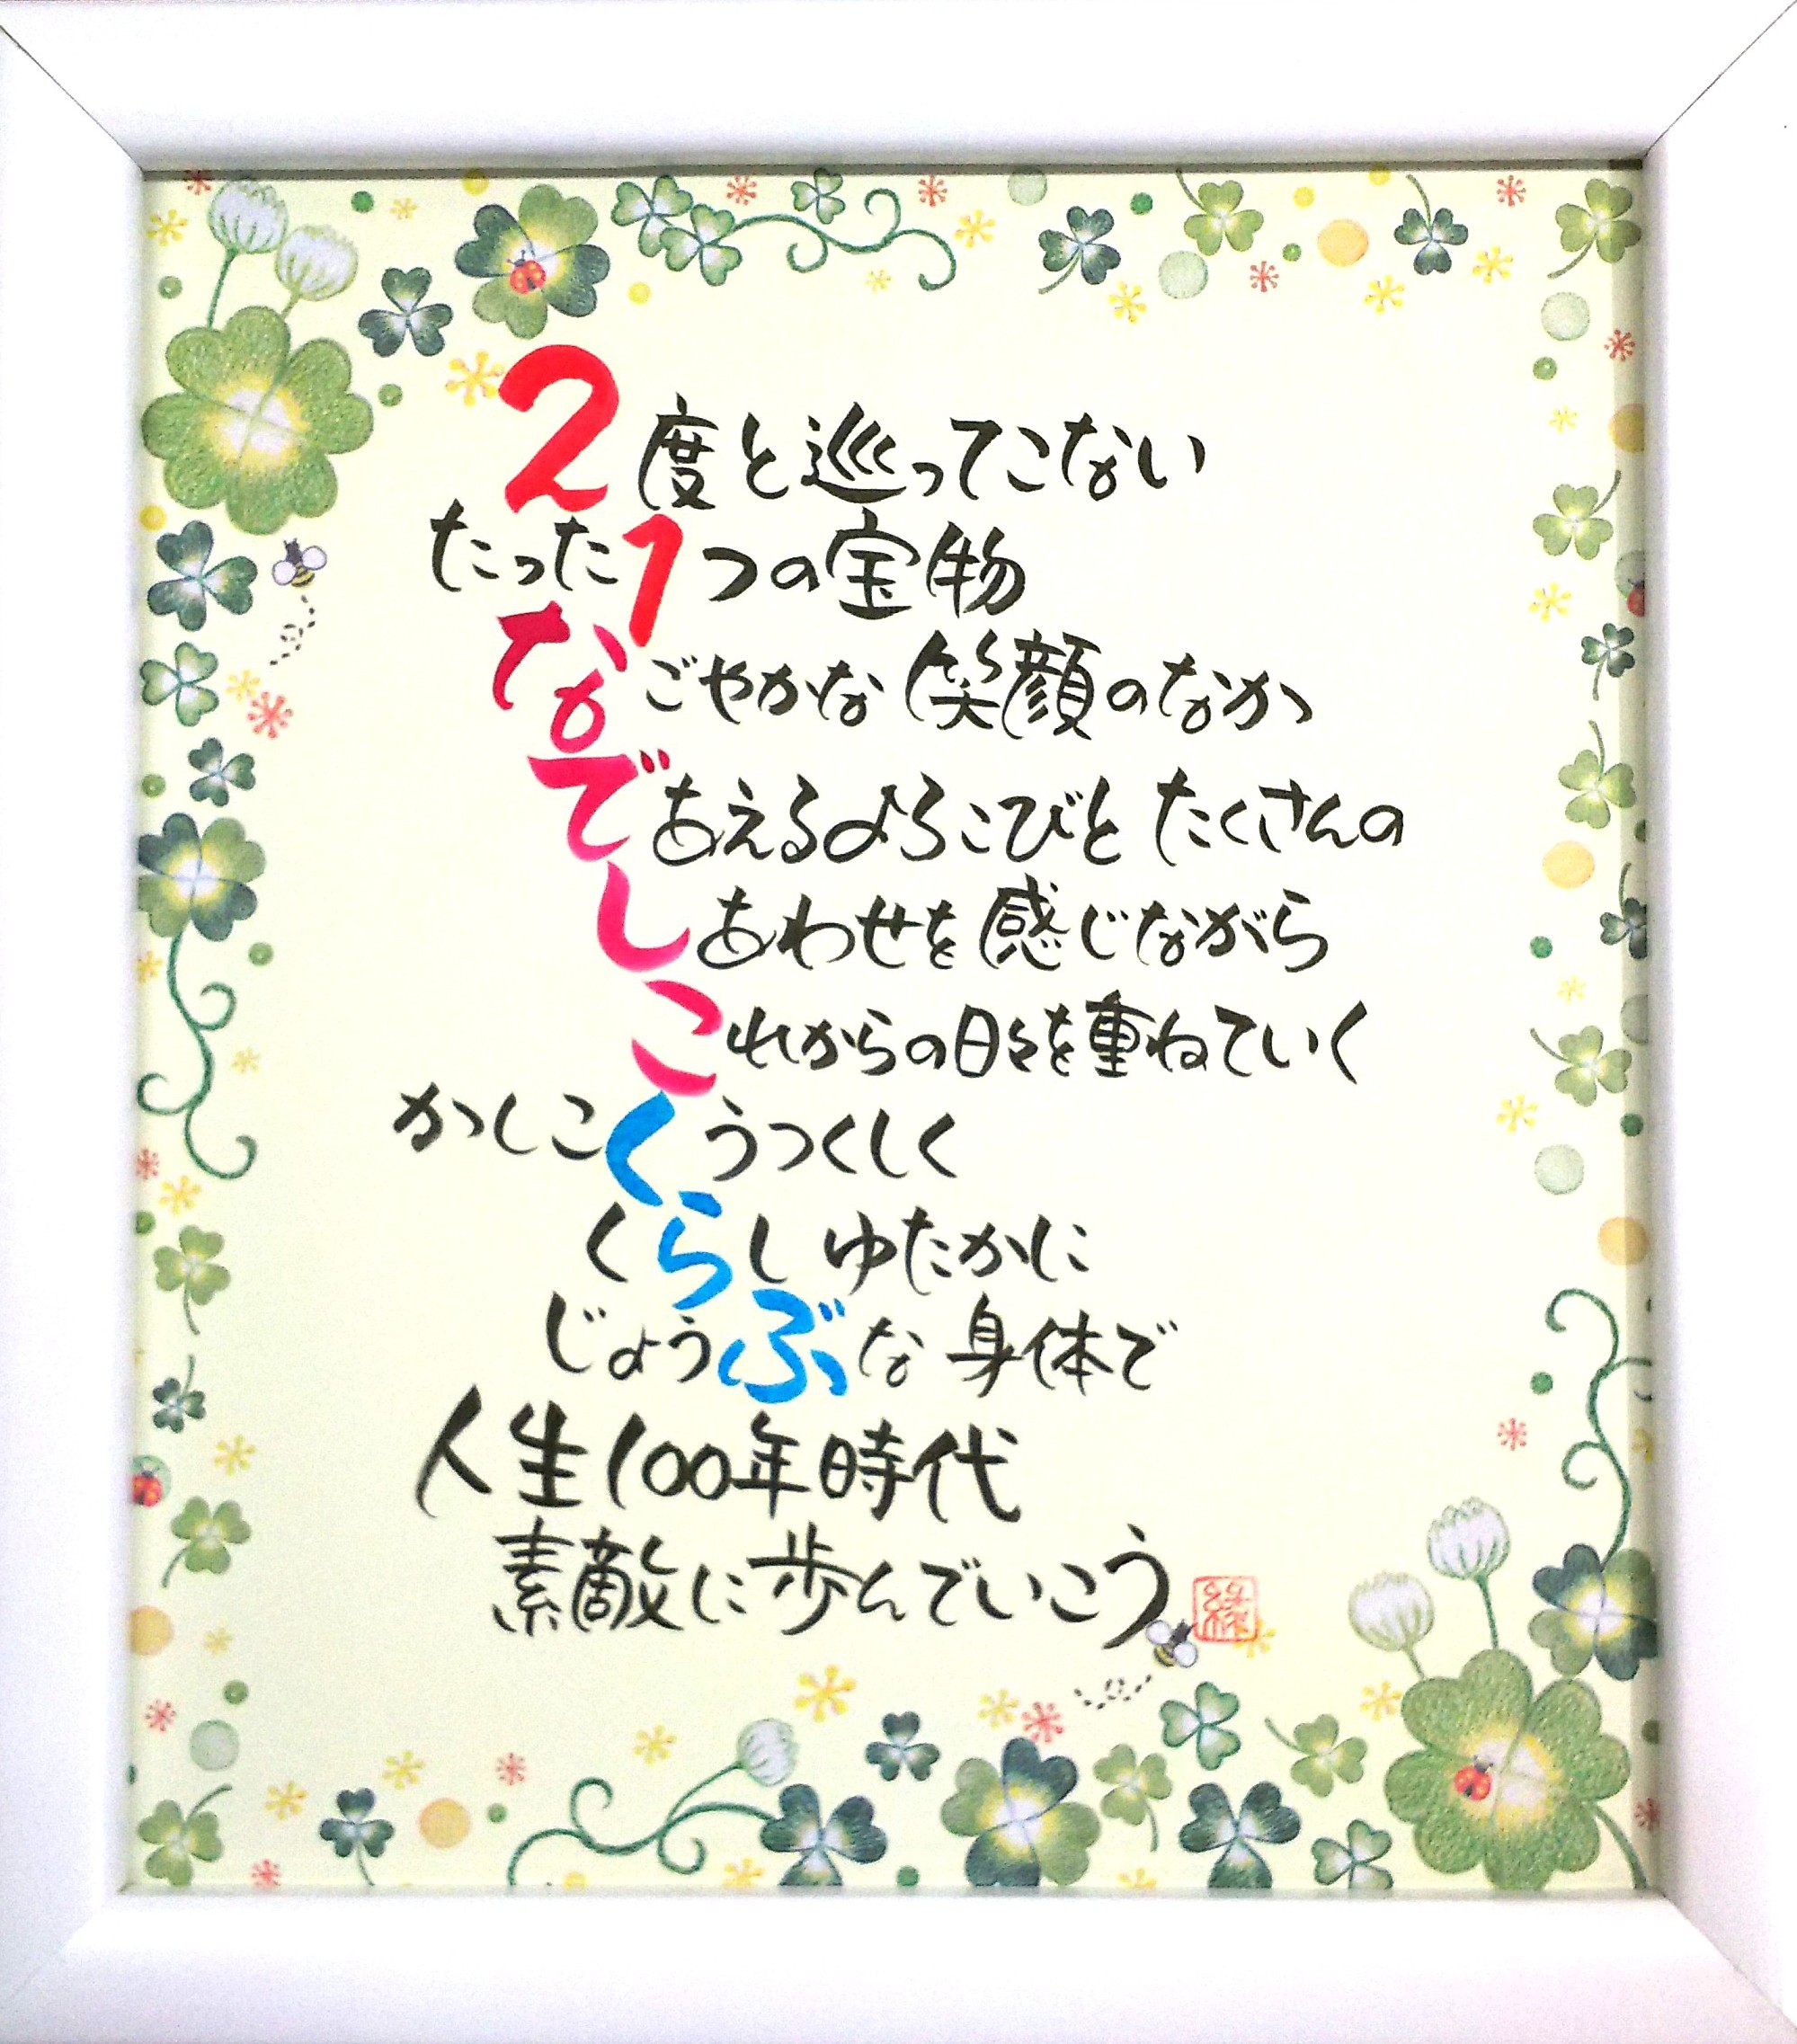 2度と巡ってこない
たった1つの宝物
なごやかな笑顔のなか
であえるよろこびと たくさんの
しあわせを感じながら
これからの日々を重ねていく
かしこくうつくしく
くらし ゆたかに
じょうぶな身体で
人生100年時代
素敵に歩んでいこう